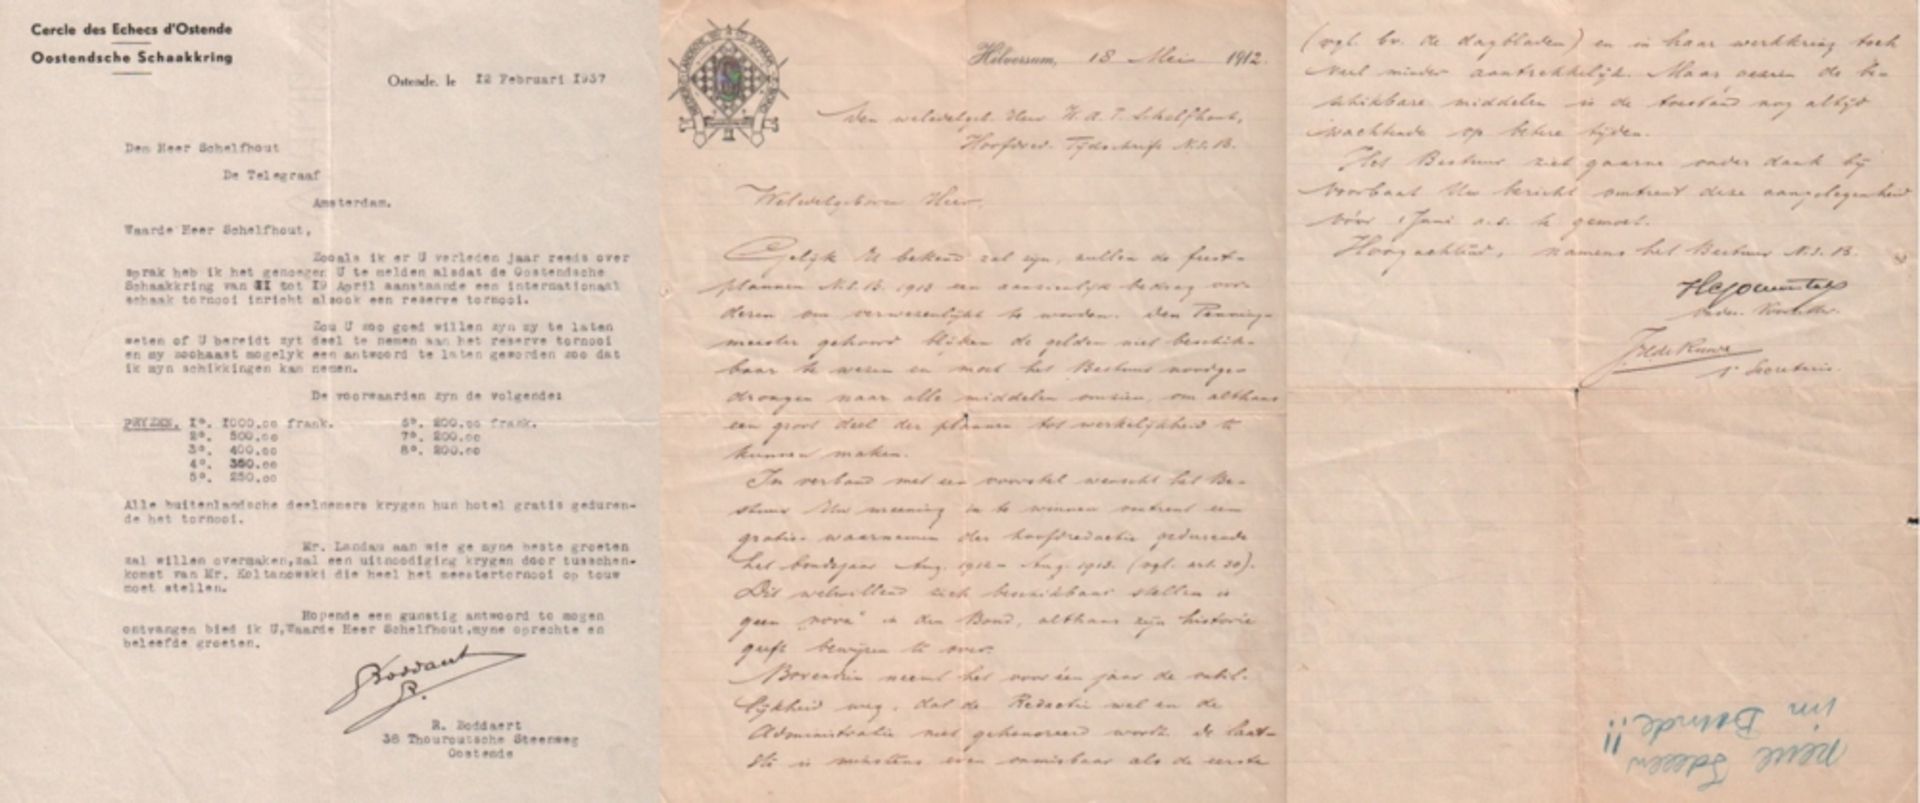 Cercle des Echecs d'Ostende
Oostendsche Schaakkring
Ostende, le 12 Februari 1937
Den Heer Schelfhout
De Telegraaf
Amsterdam.
Waarde Heer Schelfhout,
Zooals ik er U verleden jaar reeds over
sprak heb ik het genoegen U te melden alsdat de Oostendsche
Schaakkring van II tot I9 April aanstaande een internationaal
schaak tornooi inricht alsook een reserve tornooi.
Zou U zoo goed willen zyn my te laten
weten of U bereidt zyt deel te nemen aan het reserve tornooi
en my zoohaast mogelyk een antwoord te laten geworden zoo dat
ik myn schikkingen kan nemen.
De voorwaarden zyn de volgende:
PRYZEN. I°. I000.00 frank. 6°. 200.00 frank.
2°. 500.00 7°. 200.00
3°. 400.00 8°. 200.00
4°. 350.00
5°. 250.00
Alle buitenlandsche deelnemers krygen hun hotel gratis geduren-
de het tornooi.
Mr. Landau aan wie ge myne beste groeten
zal willen overmaken,zal een uitnoodiging krygen door tusschen-
komst van Mr. Koltanowski die heel het meestertornooi op touw
moet stellen.
Hopende een gunstig antwoord te mogen
ontvangen bied ik U,Waarde Heer Schelfhout,myne oprechte en
beleefde groeten.
R. Boddaert
38 Thouroutsche Steenweg
Oostende
Hilversum, 18 Mei 1912.
Den weledelgeb. Heer W. A. T. Schelfhout,
Hoofdred. Tijdschrift N.S.B.
Weledelgeboren Heer,
Gelijk U bekend zal zijn, zullen de feest-
plannen N.S.B. 1913 een aanzienlijk bedrag vor-
deren, om verwezenlijkt te worden. Den Penning-
meester gehoord blijken de gelden niet beschik-
baar te wezen en moet het Bestuur noodge-
drongen naar alle middelen omzien, om althans
een groot deel der plannen tot werkelijkheid te
kunnen maken.
In verband met een voorstel wenscht het Be-
stuur Uw meening in te winnen omtrent een
gratis waarnemen der hoofdredactie gedurende
het bondsjaar Aug. 1912 - Aug. 1913. (vgl. art. 30).
Dit welwillend zich beschikbaar stellen is
geen "nova" in den Bond, althans zijn historie
geeft bewijzen te over.
Bovendien neemt het voor één jaar de onbil-
lijkheid weg, dat de Redactie wel en de
Administratie niet gehonoreerd wordt. De laat-
ste is minstens even onmisbaar als de eerste
(vgl. bv. de dagbladen) en in haar werkkring toch
veel minder aantrekkelijk. Maar wegens de be-
schikbare middelen is de toestand nog altijd
wachtende op betere tijden.
Het Bestuur ziet gaarne onder dank bij
voorbaat Uw bericht omtrent deze aangelegenheid
vóór 1 Juni a.s. te gemoet.
Hoogachtend, namens het Bestuur N.S.B.
Onder-Voorzitter.
1e Secretaris.
neue Ideen
im Bunde!!